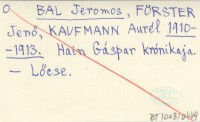 O. BAL Jeromos, FÖRSTER
Jenő, KAUFMANN Aurél 1910-
-1913. Hain Gáspár krónikája.
— Lőcse.
BT 1003/0449